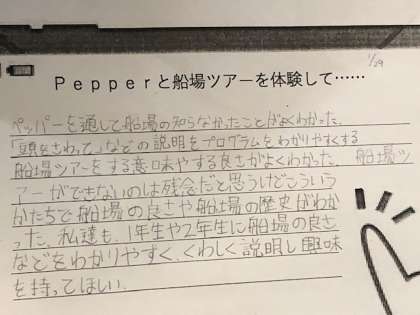 1/29
Pepperと船場ツアーを体験して……
ペッパーを通して船場の知らなかったことがよくわかった。
「頭をさわって」などの説明をプログラムをわかりやすくする
船場ツアーをする意味やする良さがよくわかった。 船場ツ
アーができないのは残念だと思うけどこういう
かたちで船場の良さや船場の歴史がわか
った。私達も、1年生や2年生に船場の良さ
などをわかりやすく、くわしく説明し興味
を持ってほしい。